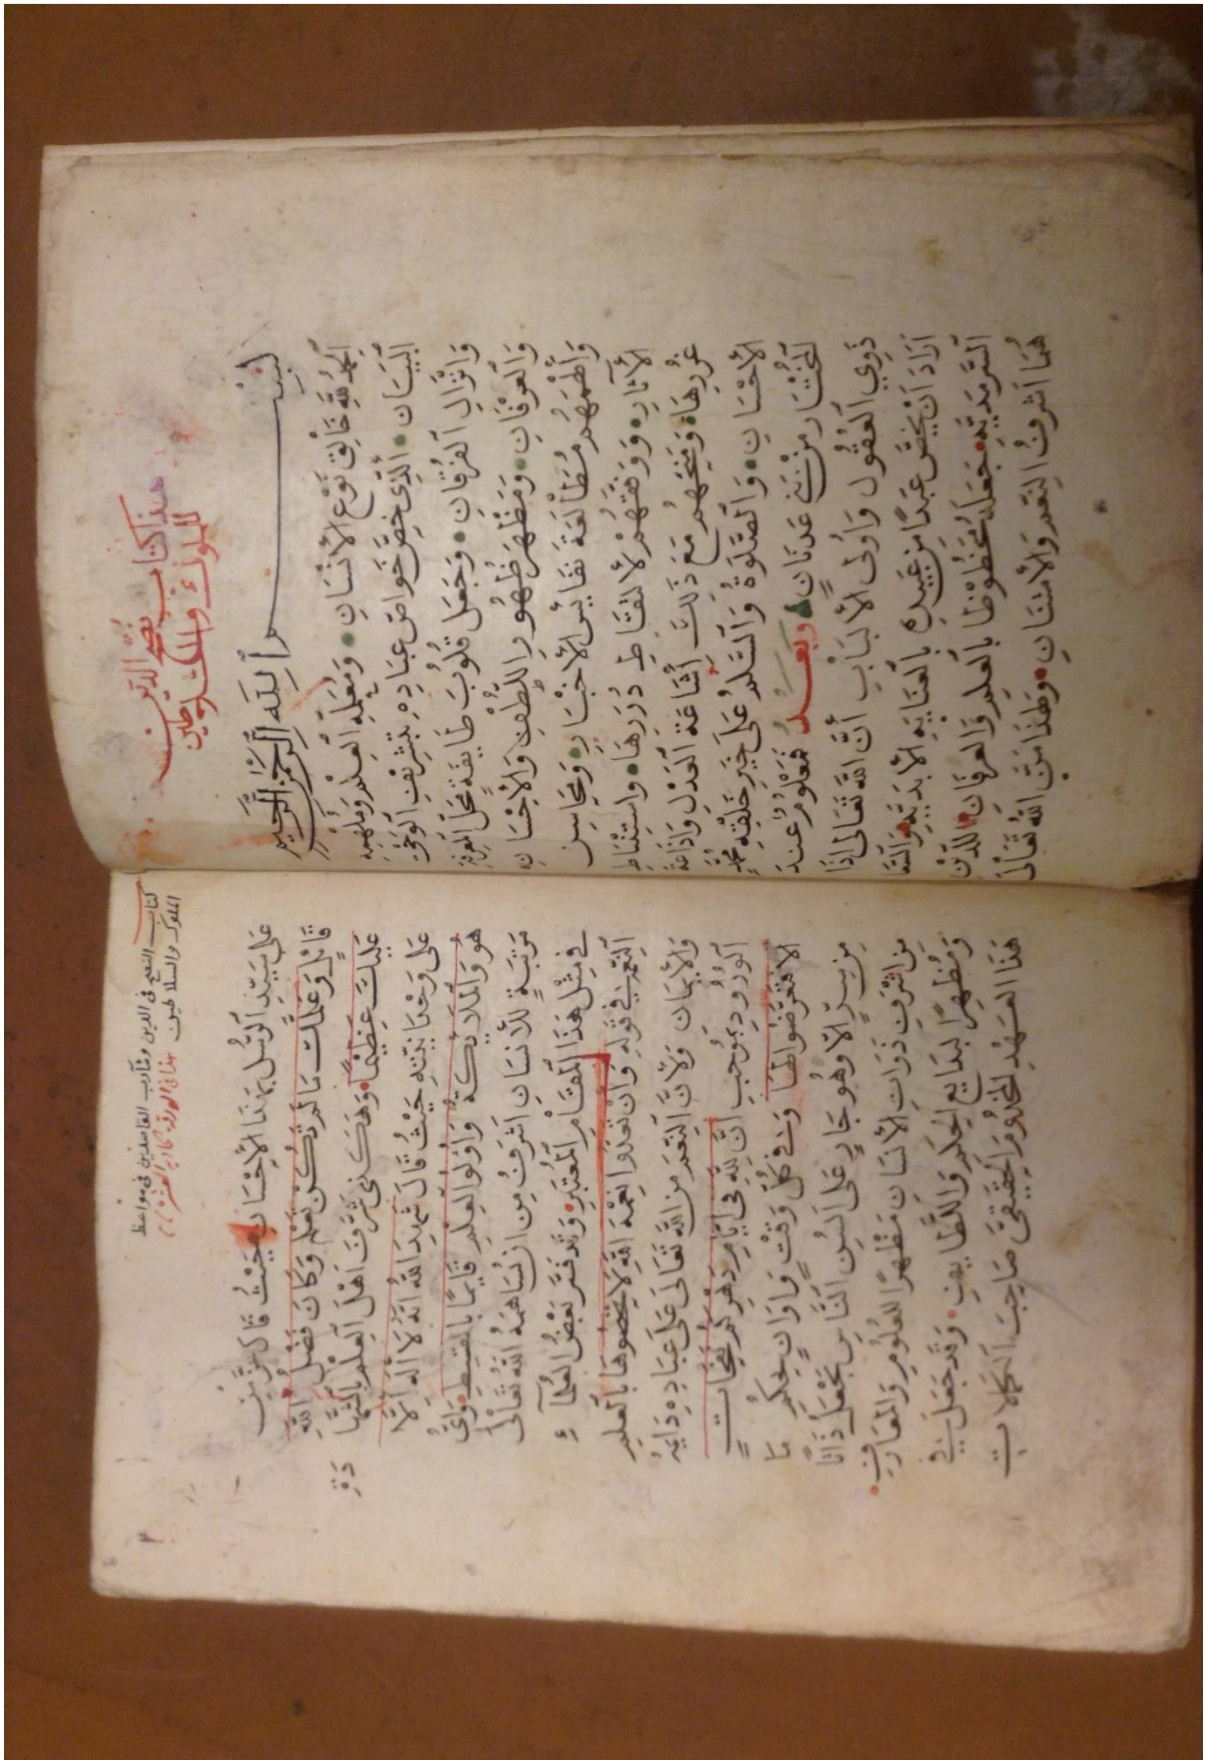 هذا كتاب نصح الدين
للملوك والسلاطين
بسم الله الرحمن الرحيم
الحمد لله خالق نوع الانسان ومعلمه العلم وملهمه
البيان الذي خص خواص عباده بتشريف الوحي
وانزال الفرقان وجعل قلوب طايفة محل العز
والعرفان ومظهر ظهور اللطف والاحسان
والهمهم مطالعة نفايس الاخبار ومحاسن
الآثار ووفقهم لالتقاط دررها واستنباط
غررها ومنحهم مع ذلك اشاعة العدل واذاعة
الاحسان والصلوة والسلام على خير خلقه محمد
المختار من بني عدنان وبعد فمعلوم عند
ذوي العقول واولى الالباب ان الله تعالى اذا
اراد ان يخص عبدا من عبيده بالعناية الابدية والسعا
السرمدية جعله محظوظا بالعلم والعرفان اللذين
هما اشرف النعم والامتنان وهذا من الله تعالى
كتاب النصح في الدين ومآرب القاصدين في مواعظ
الملوك والسلاطين
على سيد الرسل بهذا الاحسان حيث قال عز من
قائل وعلمك ما لم تكن تعلم وكان فضل الله
عليك عظيما وهكذى شرف اهل العلم بالشها
دة
على وحدانيته حيث قال شهد الله انه لا اله الا
هو والملايكة واولوا العلم قايما بالقسط واى
مرتبة للانسان اشرف من ان ساهمه الله تعالى
في مثل هذا المقام المعتبر وقد فسر بعض العلماء
النعم في قوله وان تعدوا نعمة الله لا تحصوها بالعلم
والايمان ولان النعم من الله تعالى على عباده دايمة
الورود بموجب ان لله في ايام دهركم نفحات
الا فتعرضوا لها وفي كل وقت واوان حكم ما
من سر الا وهو جاري على السن الناس بجعل ذاتا
من اشرف ذوات الانسان مظهرا للعلوم والمعارف
ومظهرا لبدايع الحكم واللطايف وقد جعل في
هذا العهد المخدوم الحقيقي صاحب الكمالات